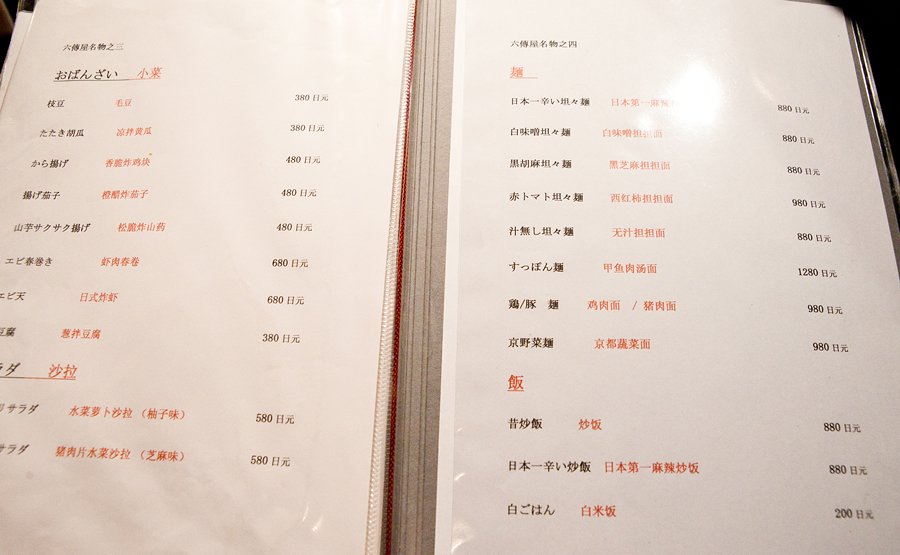 六傳屋名物之三
おばんざい 小菜
枝豆 毛豆 380 日元
たたき胡瓜 凉拌黄瓜 380 日元
から揚げ 香脆炸鸡块 480 日元
揚げ茄子 橙醋炸茄子 480 日元
山芋サクサク揚げ 松脆炸山药 480 日元
エビ春巻き 虾肉春卷 680 日元
エビ天 日式炸虾 680 日元
豆腐 葱拌豆腐 380 日元
ラダ 沙拉
サラダ 水菜萝卜沙拉 （柚子味） 580 日元
サラダ 猪肉片水菜沙拉 （芝麻味） 580 日元
六傳屋名物之四
麺
日本一辛い坦々麺 日本第一麻辣 880 日元
白味噌坦々麺 白味噌担担面 880 日元
黒胡麻坦々麺 黑芝麻担担面 880 日元
赤トマト坦々麺 西红柿担担面 980 日元
汁無し坦々麺 无汁担担面 880 日元
すっぽん麺 甲鱼肉汤面 1280 日元
鶏/豚 麺 鸡肉面 / 猪肉面 980 日元
京野菜麺 京都蔬菜面 980 日元
飯
昔炒飯 炒饭 880 日元
日本一辛い炒飯 日本第一麻辣炒饭 880 日元
白ごはん 白米饭 200 日元